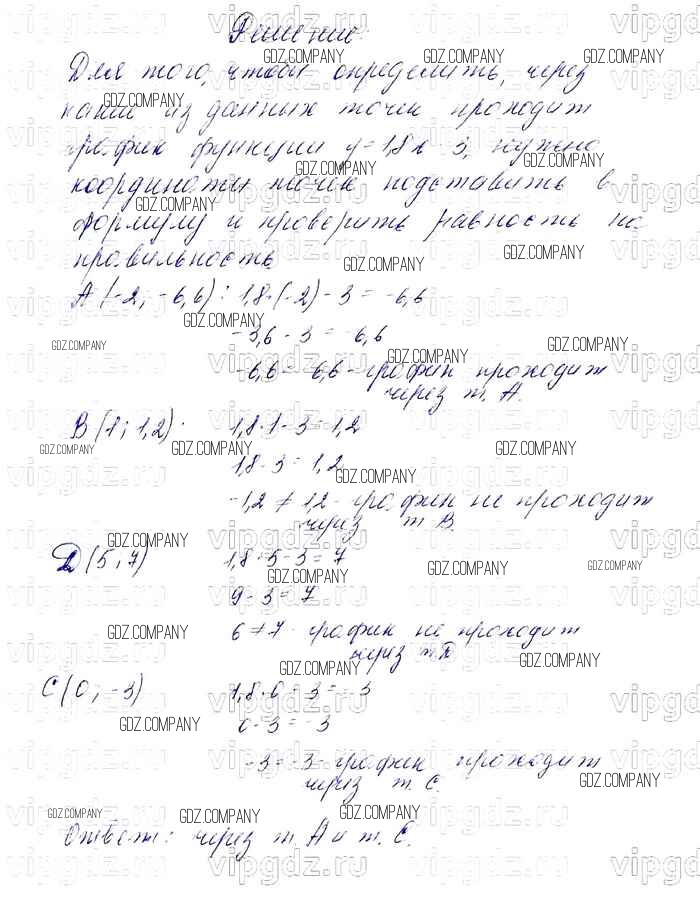 Решение:
Для того, чтобы определить, через
какие из данных точек проходит
график функции y=1,8x-3, нужно
координаты точек подставить в
формулу и проверить равность на
правильность
A(-2; -6,6): 1,8·(-2)-3=-6,6
-3,6-3=-6,6
-6,6=-6,6- график проходит
через т. A.
B(1; 1,2): 1,8·1-3=1,2
1,8-3=1,2
-1,2≠1,2- график не проходит
через т B.
Д(5; 7) 1,8·5-3=7
9-3=7
6≠7- график не проходит
через т.Д
C(0; -3) 1,8·0-3=-3
0-3=-3
-3=-3- график проходит
через т. C.
Ответ: через т. A и т. C.
GDZ.COMPANY
vipgdz.ru